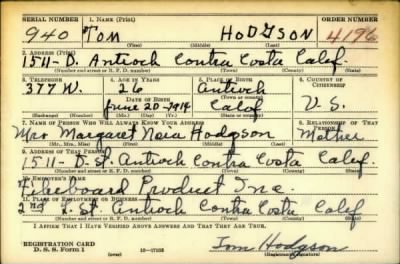 SERIAL NUMBER 1. NAME (Print) ORDER NUMBER
940 TOM HODGSON 4196
(First) (Middle) (Last)
2. ADDRESS (Print)
1511-D. Antioch Contra Costa Calif.
(Number and street or R. F. D. number) (Town) (County) (State)
3. TELEPHONE 4. AGE IN YEARS 5. PLACE OF BIRTH 6. COUNTRY OF CITIZENSHIP
377W. 26 Antioch
DATE OF BIRTH (Town or county)
June 20-1914 Calif U.S.
(Exchange) (Number) (Mo.) (Day) (Yr.) (State or country)
7. NAME OF PERSON WHO WILL ALWAYS KNOW YOUR ADDRESS 8. RELATIONSHIP OF THAT PERSON
Mrs Margaret Hodgson Mother
(Mr., Mrs., Miss) (First) (Middle) (Last)
9. ADDRESS OF THAT PERSON
1511-D. St. Antioch Contra Costa Calif.
(Number and street or R. F. D. number) (Town) (County) (State)
10. EMPLOYER'S NAME
Fibreboard Product Inc.
11. PLACE OF EMPLOYMENT OR BUSINESS
2nd L. St. Antioch Contra Costa Calif
(Number and street or R. F. D. number) (Town) (County) (State)
I AFFIRM THAT I HAVE VERIFIED ABOVE ANSWERS AND THAT THEY ARE TRUE.
REGISTRATION CARD
D. S. S. Form 1 (over) 16-17105 Tom Hodgson
(Registrant's signature)